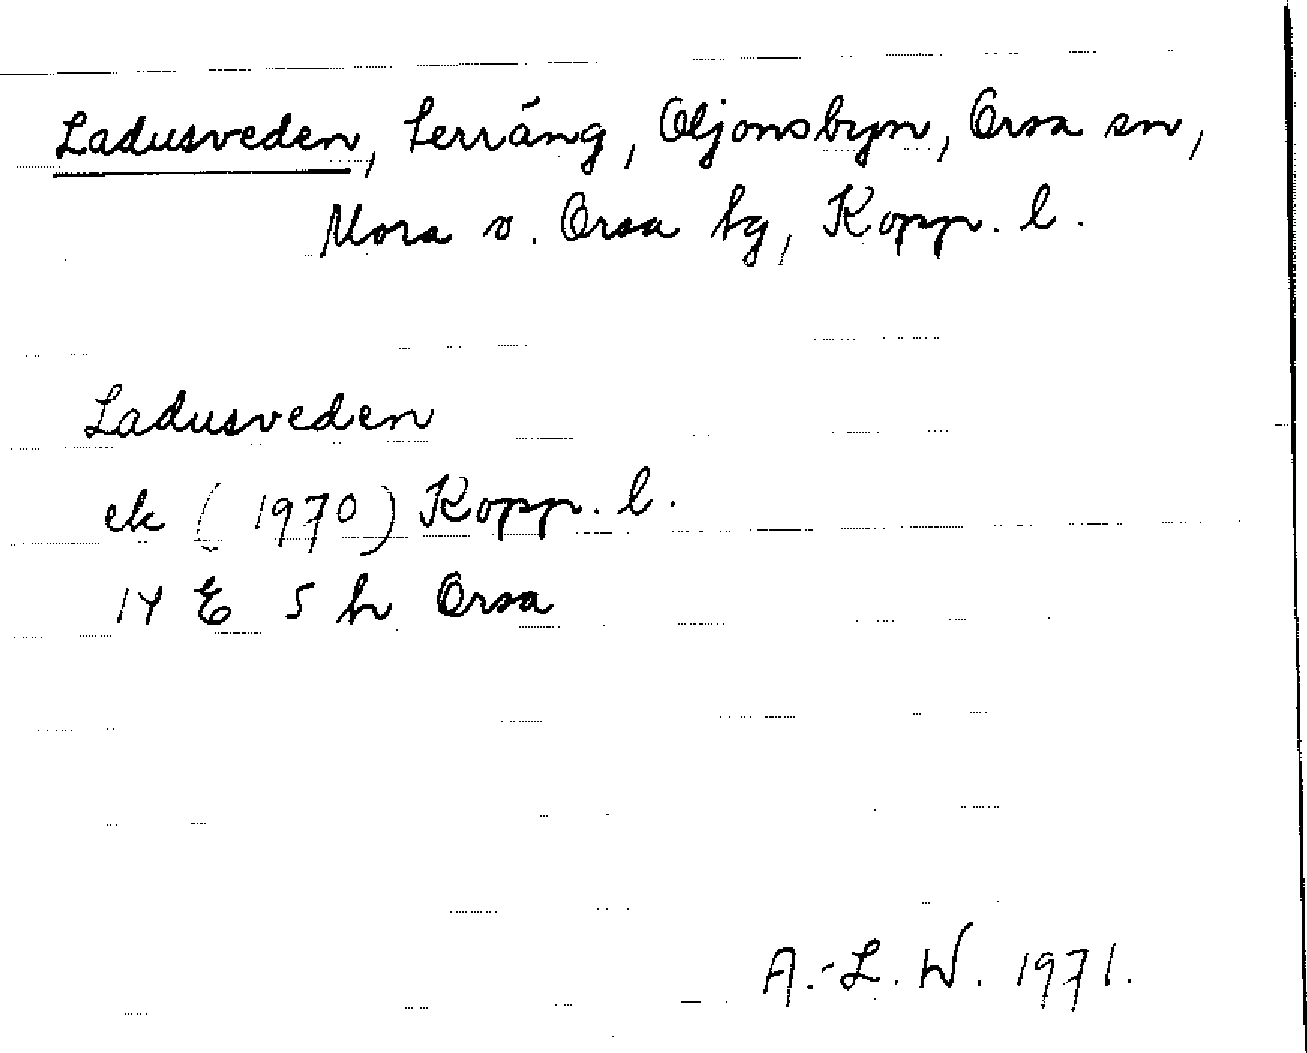 Ladusveden, terräng, Oljonsbyn, Orsa sn,
Mora o. Orsa tg, Kopp. l.
Ladusveden
ek (1970) Kopp. l.
14 E 5 h Orsa
A.-L. W. 1971.